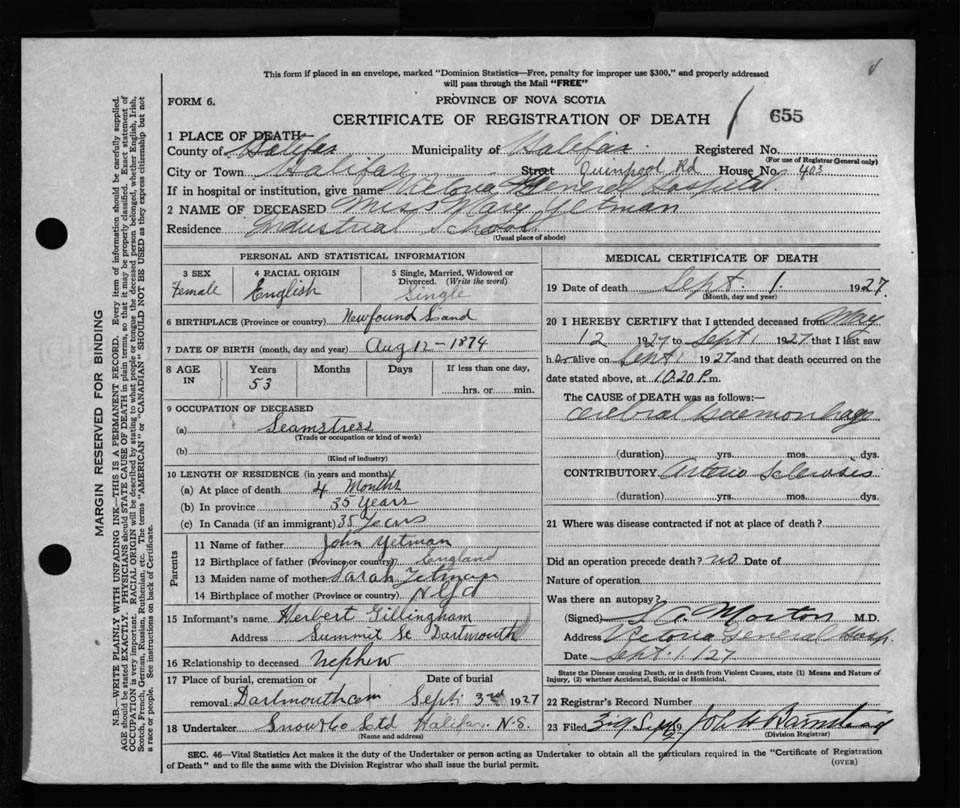 This form if placed in an envelope, marked "Dominion Statistics—Free, penalty for improper use $300," and properly addressed
will pass through the Mail "FREE"
FORM 6.
PROVINCE OF NOVA SCOTIA
CERTIFICATE OF REGISTRATION OF DEATH 655
1 PLACE OF DEATH—
County of Halifax Municipality of Halifax Registered No.
(For use of Registrar General only)
City or Town Halifax Street Quinpool Rd House No. 403
If in hospital or institution, give name Victoria General Hospital
2 NAME OF DECEASED Miss Mary Yetman
Residence Industrial School
(Usual place of abode)
PERSONAL AND STATISTICAL INFORMATION
3 SEX 4 RACIAL ORIGIN 5 Single, Married, Widowed or
Divorced. (Write the word)
Female English Single
6 BIRTHPLACE (Province or country) Newfoundland
7 DATE OF BIRTH (month, day and year) Aug 12 - 1874
8 AGE IN Years Months Days If less than one day,
53 hrs. or min.
9 OCCUPATION OF DECEASED
(a) Seamstress
(Trade or occupation or kind of work)
(b)
(Kind of industry)
10 LENGTH OF RESIDENCE (in years and months)
(a) At place of death 4 Months
(b) In province 35 Years
(c) In Canada (if an immigrant) 35 Years
Parents
11 Name of father John Yetman
12 Birthplace of father (Province or country) England
13 Maiden name of mother Sarah Yetman
14 Birthplace of mother (Province or country) Nfld
15 Informant's name Herbert Gillingham
Address Summit St Dartmouth
16 Relationship to deceased Nephew
17 Place of burial, cremation or Date of burial
removal Dartmouth Sept 3rd 1927
18 Undertaker Snow & Co Ltd Halifax N.S.
(Name and address)
MEDICAL CERTIFICATE OF DEATH
19 Date of death Sept. 1. 1927
(Month, day and year)
20 I HEREBY CERTIFY that I attended deceased from May
12 1927 to Sept 1 1927 that I last saw
her alive on Sept 1 1927 and that death occurred on the
date stated above, at 10.20 P.m.
The CAUSE of DEATH was as follows:—
Cerebral haemorrhage
(duration) yrs. mos. dys.
CONTRIBUTORY Arterio Sclerosis
(duration) yrs. mos. dys.
21 Where was disease contracted if not at place of death?
Did an operation precede death? no Date of
Nature of operation
Was there an autopsy?
(Signed) Morton M.D.
Address Victoria General Hosp.
Date Sept. 1. /27
State the Disease causing Death, or in death from Violent Causes, state (1) Means and Nature of
Injury, (2) whether Accidental, Suicidal or Homicidal.
22 Registrar's Record Number
23 Filed 3rd Sept
(Division Registrar)
SEC. 46—Vital Statistics Act makes it the duty of the Undertaker or person acting as Undertaker to obtain all the particulars required in the "Certificate of Registration
of Death" and to file the same with the Division Registrar who shall issue the burial permit.
(OVER)
MARGIN RESERVED FOR BINDING
N.B.—WRITE PLAINLY WITH UNFADING INK—THIS IS A PERMANENT RECORD. Every item of information should be carefully supplied.
AGE should be stated EXACTLY. PHYSICIANS should STATE CAUSE OF DEATH in plain terms, so that it may be properly classified. Exact statement of
OCCUPATION is very important. RACIAL ORIGIN will be described by stating to what people or tongue the deceased person belonged, whether English, Irish,
Scotch, French, German, Russian, Ruthenian, etc. The terms "AMERICAN" or "CANADIAN" SHOULD NOT BE USED as they express citizenship but not
a race or people. See instructions on back of Certificate.